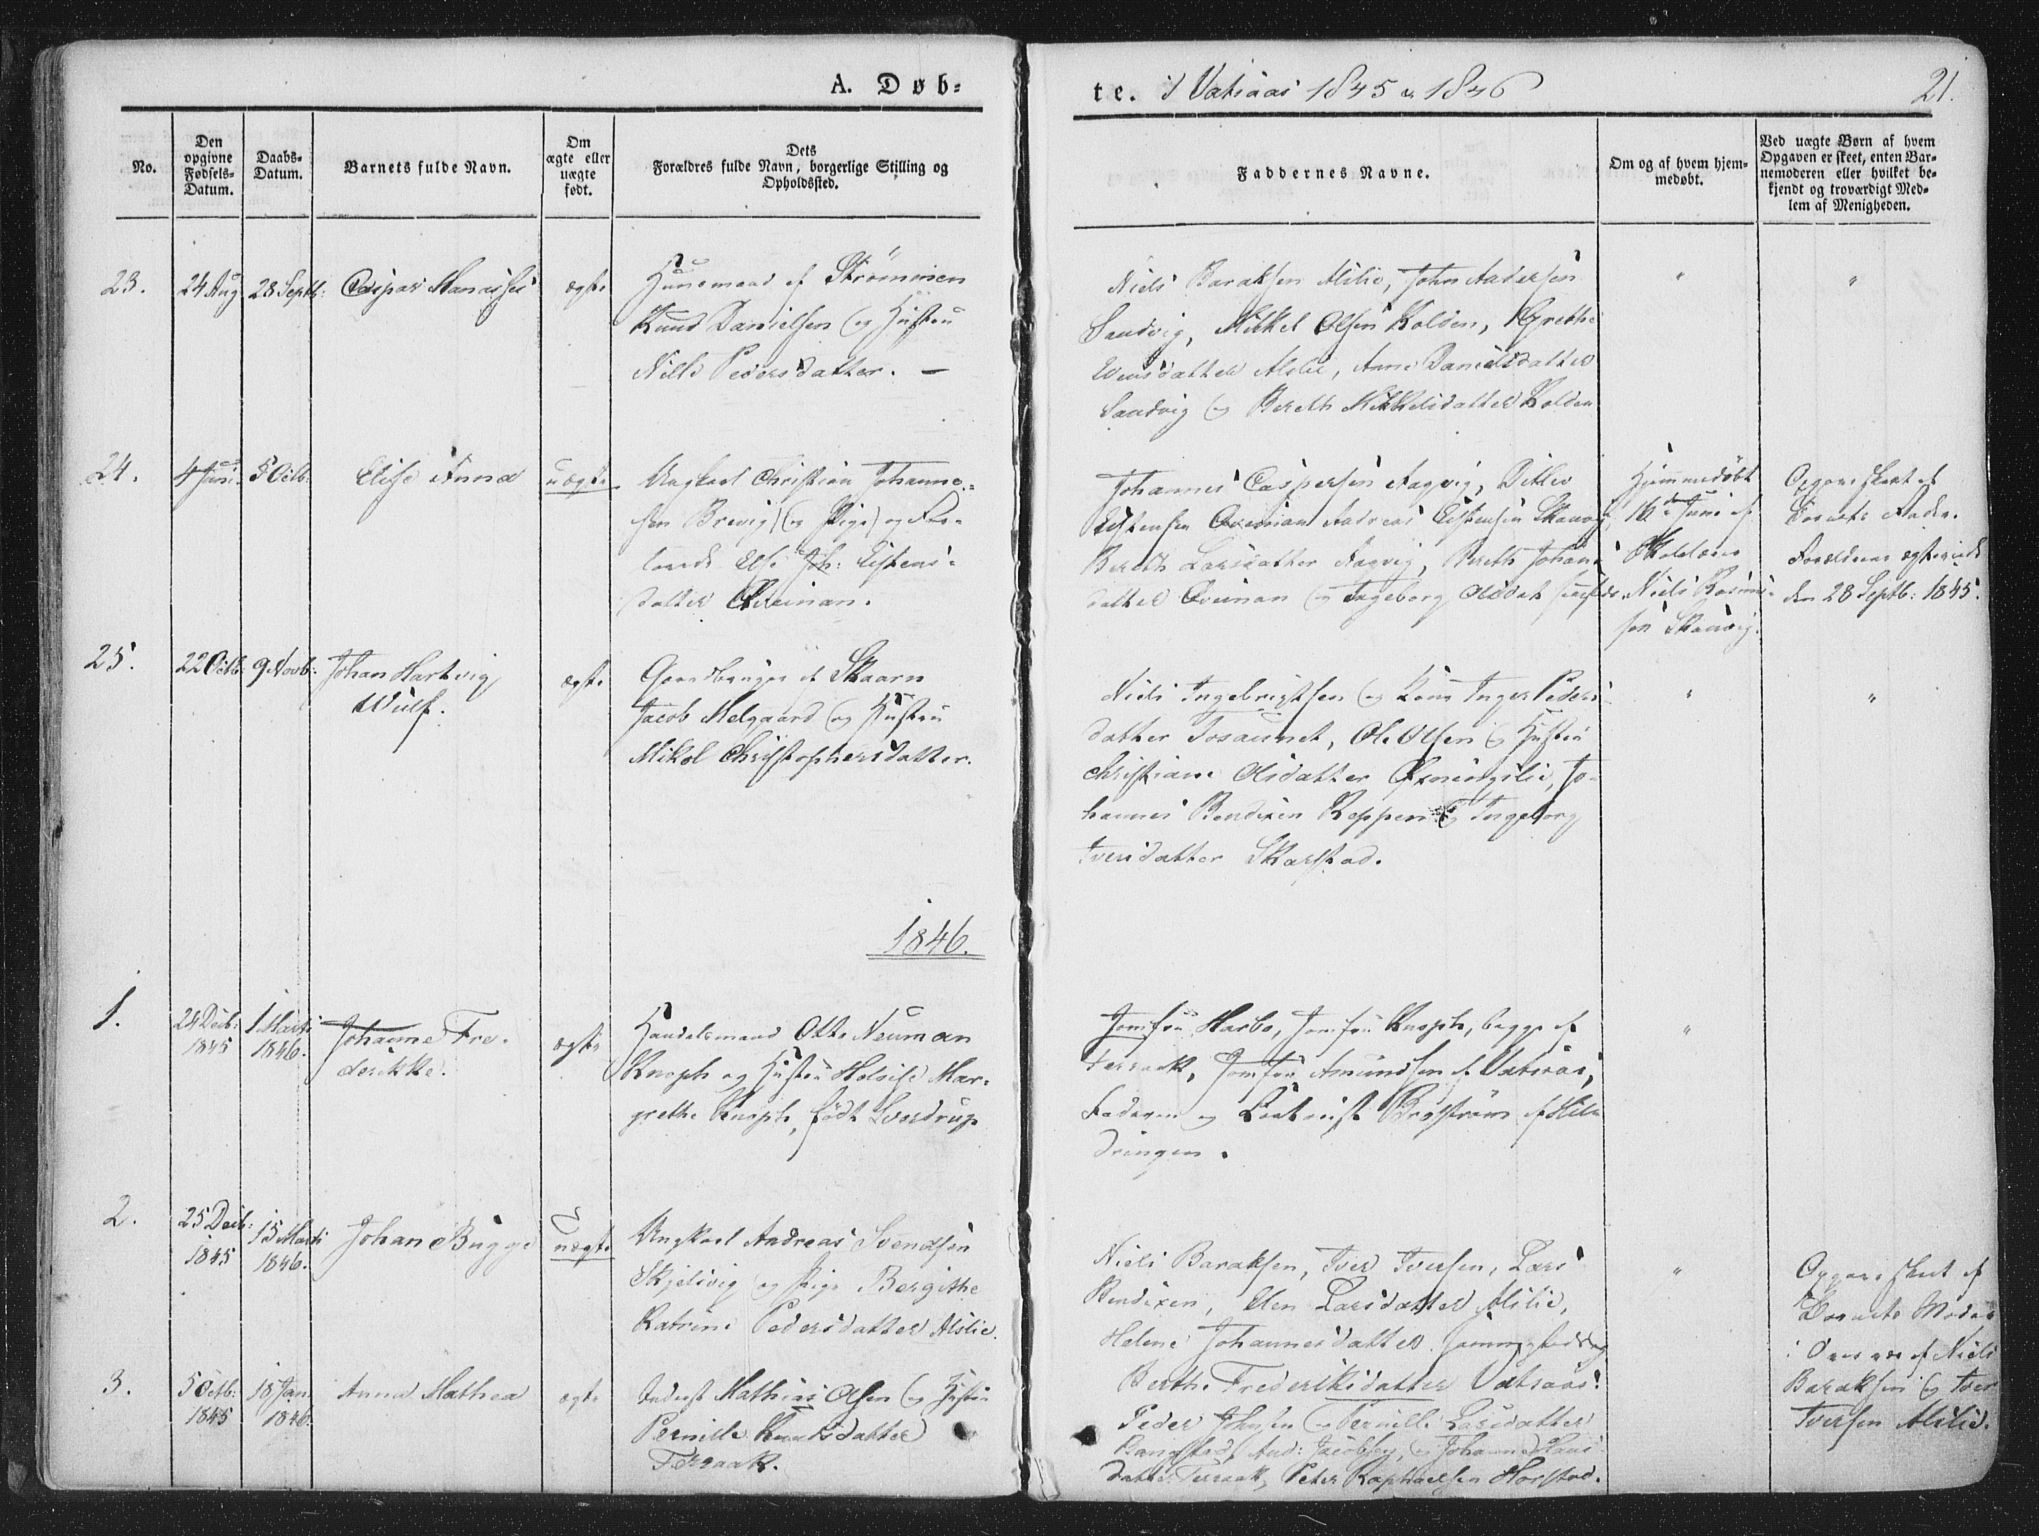 A. Døb-
te. i Vatsaas 1845 & 1846
21.
No.
Den opgivne Fødsels-Datum.
Daabs-Datum.
Barnets fulde Navn.
Om ægte eller uægte født.
Dets Forældres fulde Navn, borgerlige Stilling og Opholdssted.
Faddernes Navne.
Om og af hvem hjem-medøbt.
Ved uægte Børn af hvem Opgaven er skeet, enten Bar-nemoderen eller hvilket be-kjendt og troværdigt Med-lem af Menigheden.
23.
24 Aug
28 Septb:
Caspar Manasses
ægte
Huusmand af Strømmen
Knud Danielsen og Hustru
Nille Pedersdatter. —
Niels Baraksen Alslie, John Andersen
Sandvig, Mikkel Olsen Kolden, Grethe
Alslie, Anne Danielsdatter
Sandvig og Bereth Mikkelsdatter Kolden
"
"
24.
4 Juni
5 Octb:
Elise Anna
uægte
Ungkarl Christian Johanne-
sen Brevig og Pige og For-
lovede Else Joh: Eistens-
datter
Johannes Caspersen Fagvig, Ditlev
Eistensen Andreas Eistensen Skauvig,
Bereth Larsdatter Fagvig, Bereth Johans
datter og Ingeborg Olsdat
Hjemmedøbt
16de Juni af
Skolelærer
Niels Rasmus-
sen Skauvig.
Opgave skeet af
Barnets Fader.
Forældrene ægteviede
den 28 Septb: 1845.
25.
22 Octb:
9 Novb:
Johan Hartvig
Wulf.
ægte
Gaardbruger af Skaarn
Jacob Melgaard og Hustru
Mikol Christophersdatter.
Niels Ingebrigtsen og Kone Inger Peders
datter Tosaunet, Ole Olsen og Hustru
Christiane Olsdatter Jo-
hannes Bendixen Reppen og Ingeborg
Iversdatter Skarstad.
"
"
1846.
1.
24 Decb:
1845
1 Marti
1846.
Johanne Fre-
derikke.
ægte
Handelsmand Otto Neuman
Knoph og Hustru Heloise Mar-
grethe Knoph, født Sverdrup
Jomfru Harbo, Jomfru Knoph, begge af
Terraak, Jomfru Amundsen af Vatsaas,
Faderen og Broström af Hil-
dringen.
"
2.
25 Decb:
1845
15 Marti
1846.
Johan Bugge
uægte
Ungkarl Andreas Svendsen
Skjelsvig og Pige Bergithe
Katrine Pedersdatter Alslie.
Niels Baraksen, Iver Iversen, Lars
Bendixen, Elen Larsdatter Alslie,
Helene Johannesdatter
Berthe Frederiksdatter Vatsaas.
"
Opgave skeet af
Barnets Moder
i Overvær af Niels
Baraksen og Iver
Iversen Alslie.
3.
5 Octb:
1845
18 Jan.
1846.
Anna Mathea
ægte
Inderst Mathias Olsen og Hustru
Pernille Knudsdatter
Terraak.
Peder og Pernille Larsdatter
Bangstad, And: Jacobsen og Johanne Hans
datter Terraak, Peter Raphaelsen Horstad.